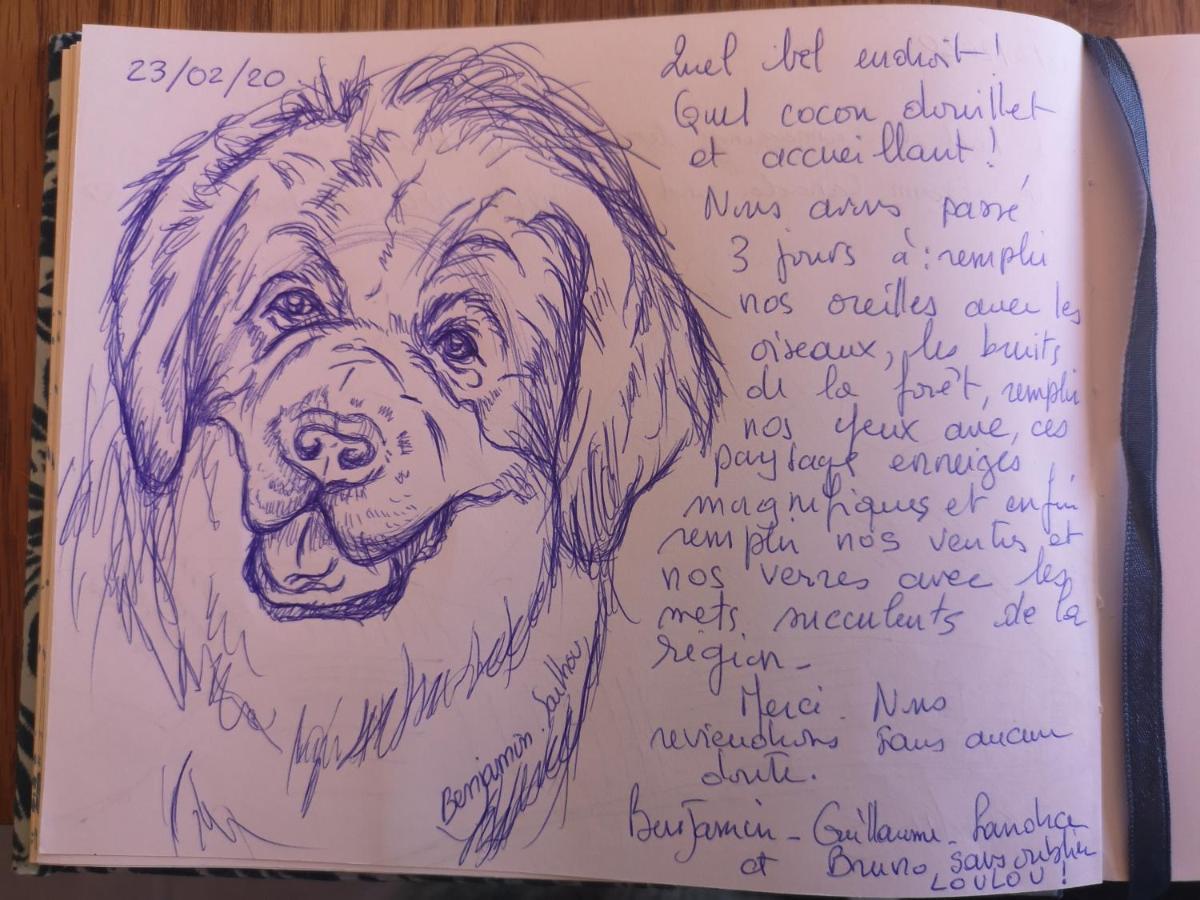 23/02/20
Quel bel endroit !
Quel cocon douillet
et accueillant !
Nous avons passé
3 jours à : remplir
nos oreilles avec les
oiseaux, les bruits
de la forêt, remplir
nos yeux avec ces
paysage enneigés
magnifiques et enfin
remplir nos ventres et
nos verres avec les
mets succulents de la
région -
Merci. Nous
reviendrons sans aucun
doute.
Benjamin - Guillaume - Sandra
et Bruno sans oublier
LOULOU !
Benjamin